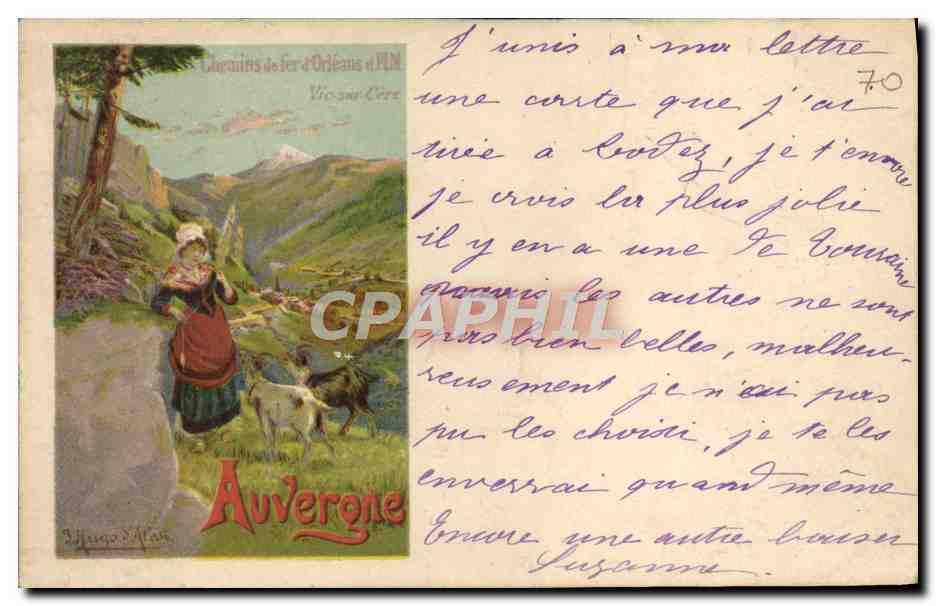 Chemins de fer d'Orléans et PLM
Vic-sur-Cère
Auvergne
F. Hugo d'Alési
J'unis à ma lettre
70
une carte que j'ai
tirée à Rodez, je t'envoie
je crois la plus jolie
il y en a une de Touraine
mais les autres ne sont
pas bien belles, malheu-
reusement je n'ai pas
pu les choisir, je te les
enverrai quand même
Encore une autre baiser
Suzanne.
CPAPHIL